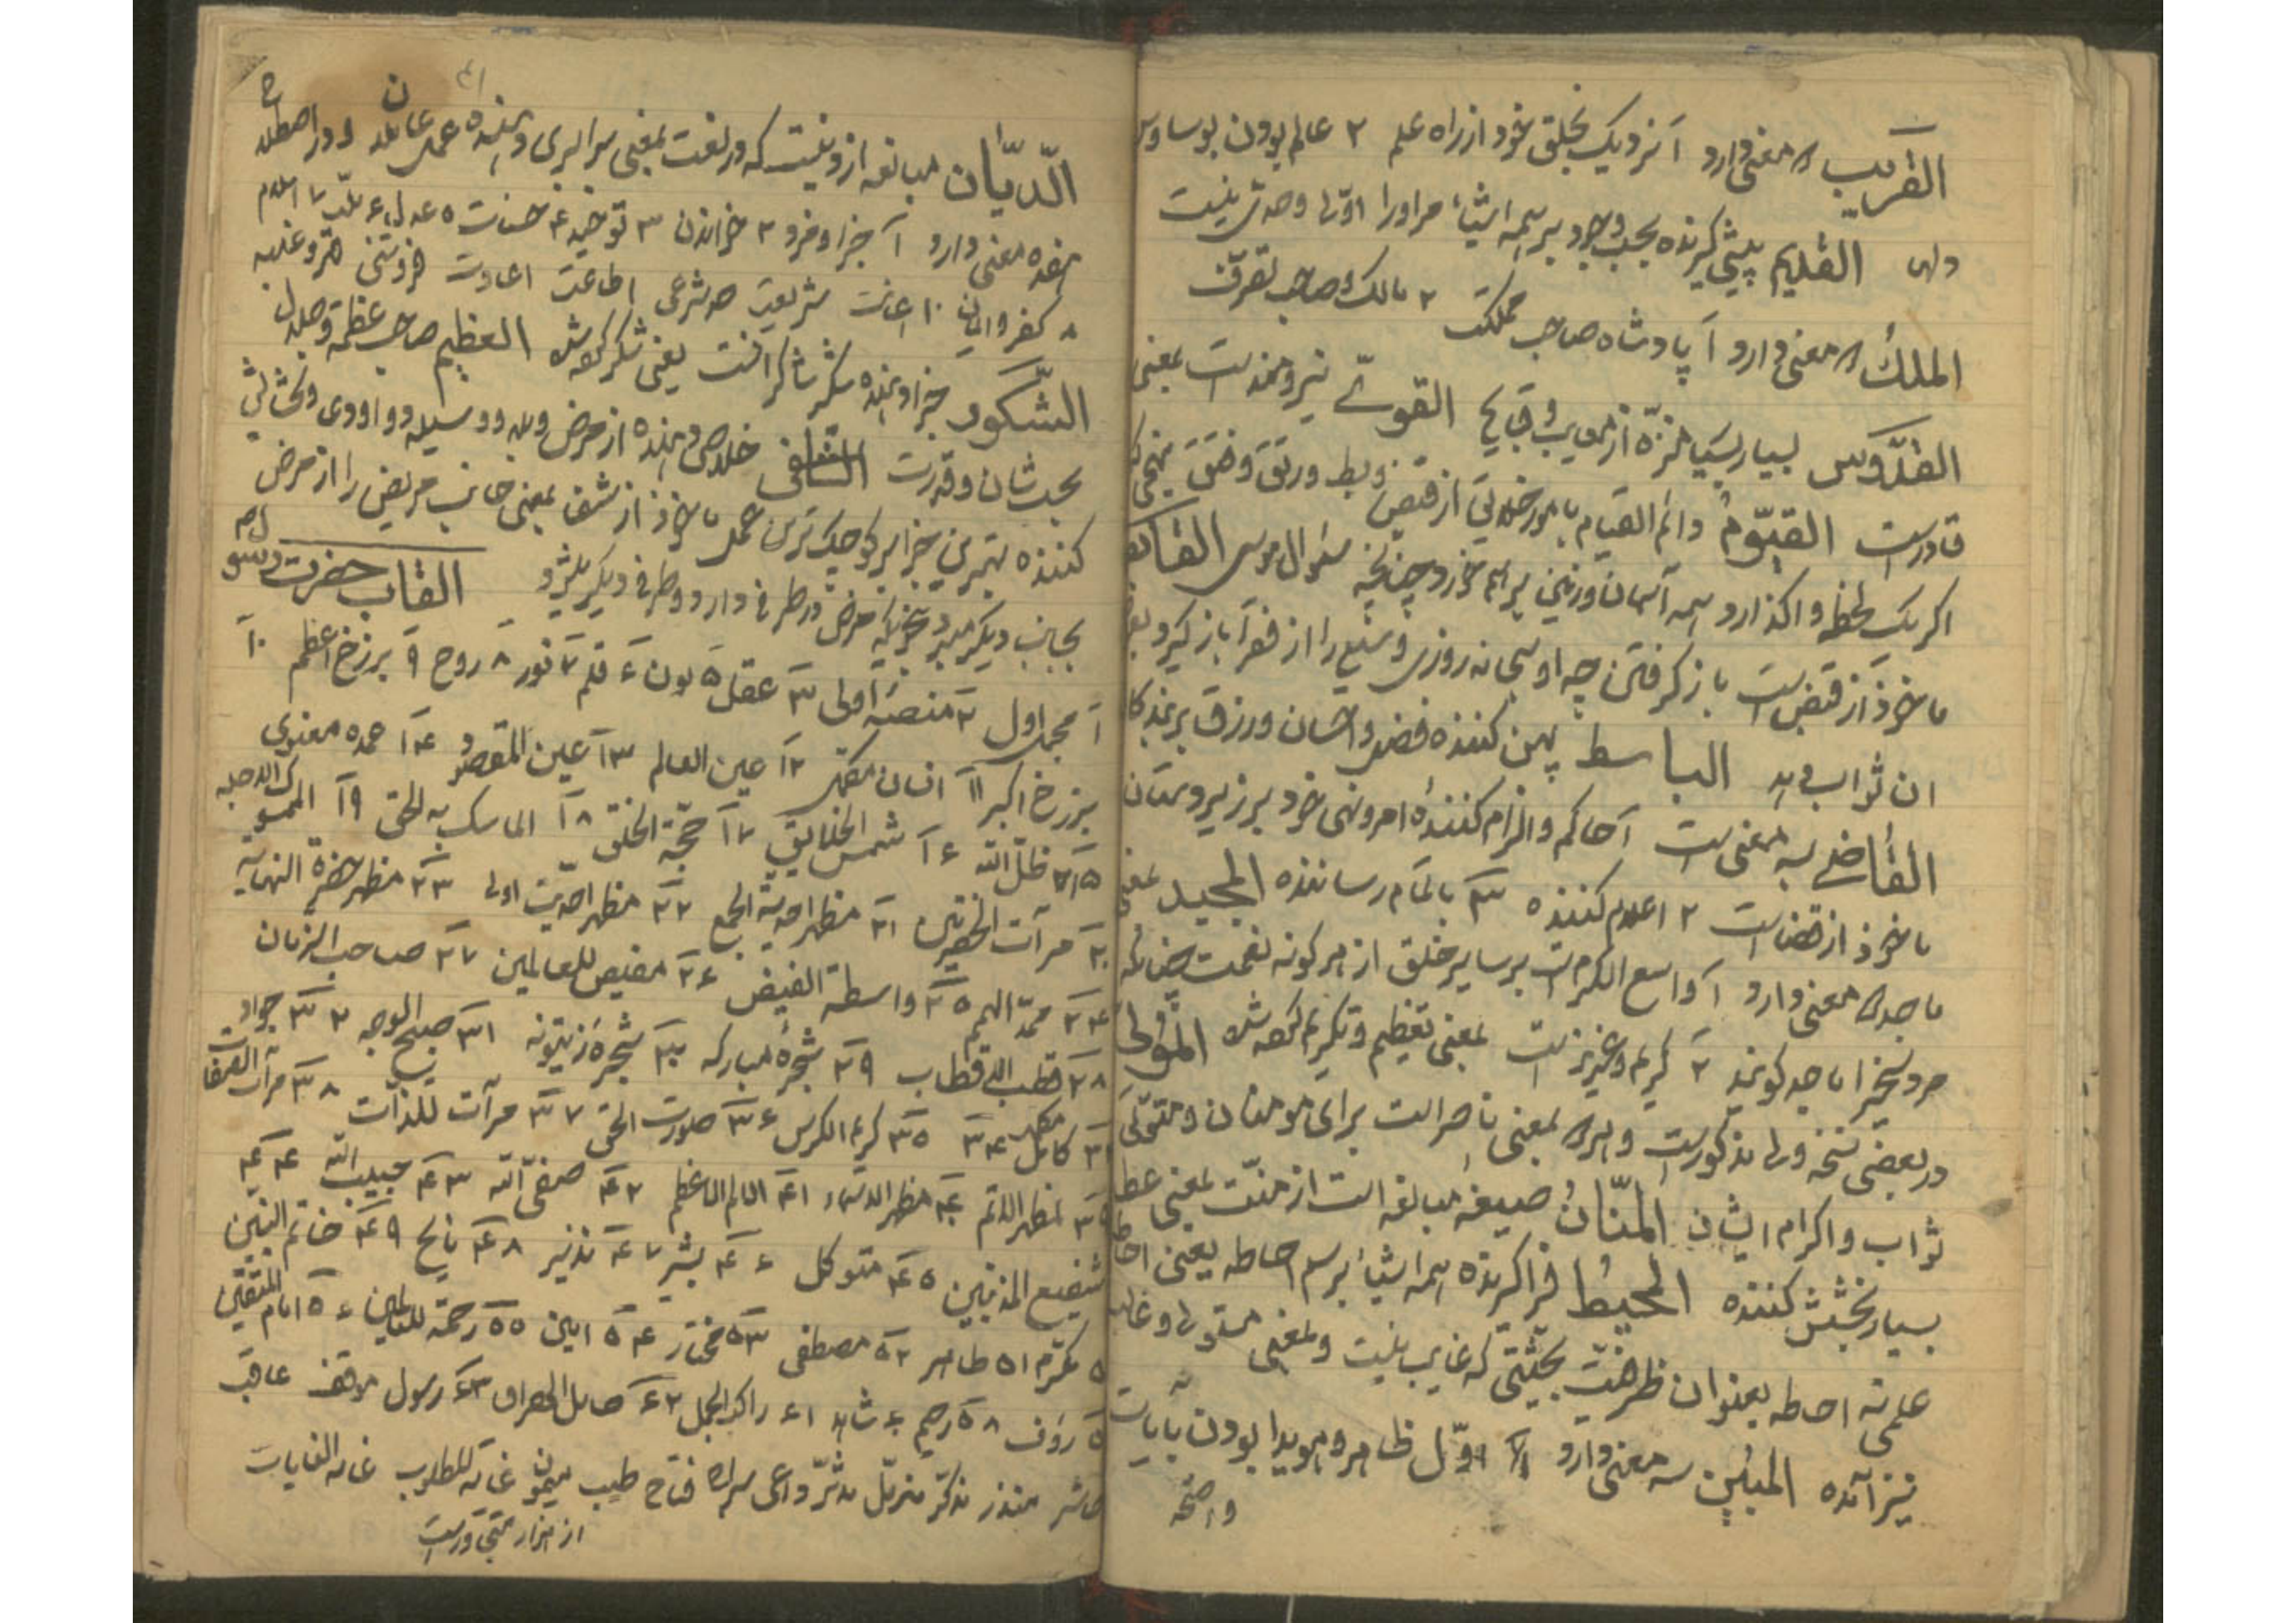 القریب ۲ معنی دارد ۱ نزدیک بخلق خود از راه علم ۲ عالم بودن بوساوس
دلها القدیم پیشی گیرنده بحسب وجود بر همه اشیاء مر او را اوّلی و حدی نیست
الملک ۲ معنی دارد ۱ پادشاه صاحب مملکت ۲ مالک و صاحب تصرّف
القدّوس بسیار بسیار منزّه از عیوب و قبایح القویّ نیرومند است بمعنی
قادر است القیّوم دائم القیام بامور خلایق از قبض و بسط و رتق و فتق
اگر یک لحظه واگذارد همه آسمان و زمین بر هم خورد چنانچه سؤال موسی القابض
ماخوذ از قبض است باز گرفتن چه او سبحانه روزی وسیع را از فقرا باز گیرد
ان ثواب دهد الباسط پهن کننده فضل و احسان و رزق بر بندگان
القاضی سه معنی است ۱ حاکم و الزام کننده امر و نهی خود بر زیردستان
ماخوذ از قضا است ۲ اعلام کننده ۳ باتمام رساننده المجید بمعنی
ماجد ۲ معنی دارد ۱ واسع الکرم است بر سایر خلق از هر گونه نعمت چنانکه
مرد سخی را ماجد گویند ۲ کریم و عزیز است بمعنی تعظیم و تکریم کرده شده المولی
در بعضی نسخه ولی مذکور است و هر ۲ بمعنی ناصر است برای مومنان و متولّی
ثواب و اکرام ایشان المنّان صیغه مبالغه است از منّت بمعنی عطا
بسیار بخشش کننده المحیط فراگیرنده همه اشیاء بر سم احاطه یعنی احاطه
علمی نه احاطه بعنوان ظرفیّت بحیثیتی که غایب نیست و بمعنی مستولی و غالب
نیز آمده المبین سه معنی دارد اوّل ظاهر و هویدا بودن بآیات
واضحه
الدّیّان مبالغه از دین است که در لغت بمعنی سزا دهنده عمل عاملان و در اصطلاح
معنی دارد ۱ جزا و مزد ۲ خواندن ۳ توحید ۴ حسنات ۵ عدل ۶ ملّت ۷ اسلام
۸ کفر و ایمان ۱۰ اعانت شریعت حد شرعی اطاعت اعادت فروتنی قهر و غلبه
الشکور جزا دهنده شکر شاکر است یعنی شکر کرده شده العظیم صاحب عظمة و جلال
بحسب شان و قدرت الشافی خلاصی دهنده از مرض و بلا و وسیله دوا
کننده بهترین جزا بر کوچک‌ترین عمل ماخوذ از شفا بمعنی جانب مریض را از مرض
بجانب دیگر میبرد بنحویکه مرض در طرفی دارد و طرفی دیگر القاب حضرت رسول
۱ مجمل اول ۲ منصّه اولی ۳ عقل ۵ نون ۶ قلم ۷ نور ۸ روح ۹ برزخ اعظم ۱۰
برزخ اکبر ۱۱ انسان مکمّل ۱۲ عین العالم ۱۳ عین المقصود ۱۴ عمده معنوی
۱۵ ظلّ الله ۱۶ شمس الخلایق ۱۷ حجّة الخلق ۱۸ الماسک به الحق ۱۹
۲۰ مرآت الحضرتین ۲۱ مظهر احدیّة الجمع ۲۲ مظهر احدیّت اولی ۲۳ مظهر حضرة النهایه
۲۴ ممدّ الهمم ۲۵ واسطة الفیض ۲۶ مفیض للعالمین ۲۷ صاحب الزّمان
۲۸ قطب الاقطاب ۲۹ شجره مبارکه ۳۰ شجره زیتونه ۳۱ صبیح الوجه ۳۲ جواد
۳۳ کامل ۳۴ مکمّل ۳۵ کریم الکرسی ۳۶ صورت الحق ۳۷ مرآت للذّات ۳۸ مرآت الصفات
۳۹ مظهر الاتم ۴۰ مظهر الاسماء ۴۱ امام الاعظم ۴۲ صفیّ الله ۴۳ حبیب الله ۴۴
شفیع المذنبین ۴۵ متوکل ۴۶ بشیر ۴۷ نذیر ۴۸ ناسخ ۴۹ خاتم النبیین
۵۰ مکرّم ۵۱ طاهر ۵۲ مصطفی ۵۳ مختار ۵۴ امین ۵۵ رحمة للعالمین ۵۶ امام المتقین
۵۷ رؤف ۵۸ رحیم ۶۰ شاهد ۶۱ راکب الجمل ۶۲ ۶۳ رسول عاقب
حاشر منذر مذکّر مزمّل مدّثّر داعی سراج فتاح طیب میمون غایة المطلوب غایة الغایات
از هزار متجاوز است